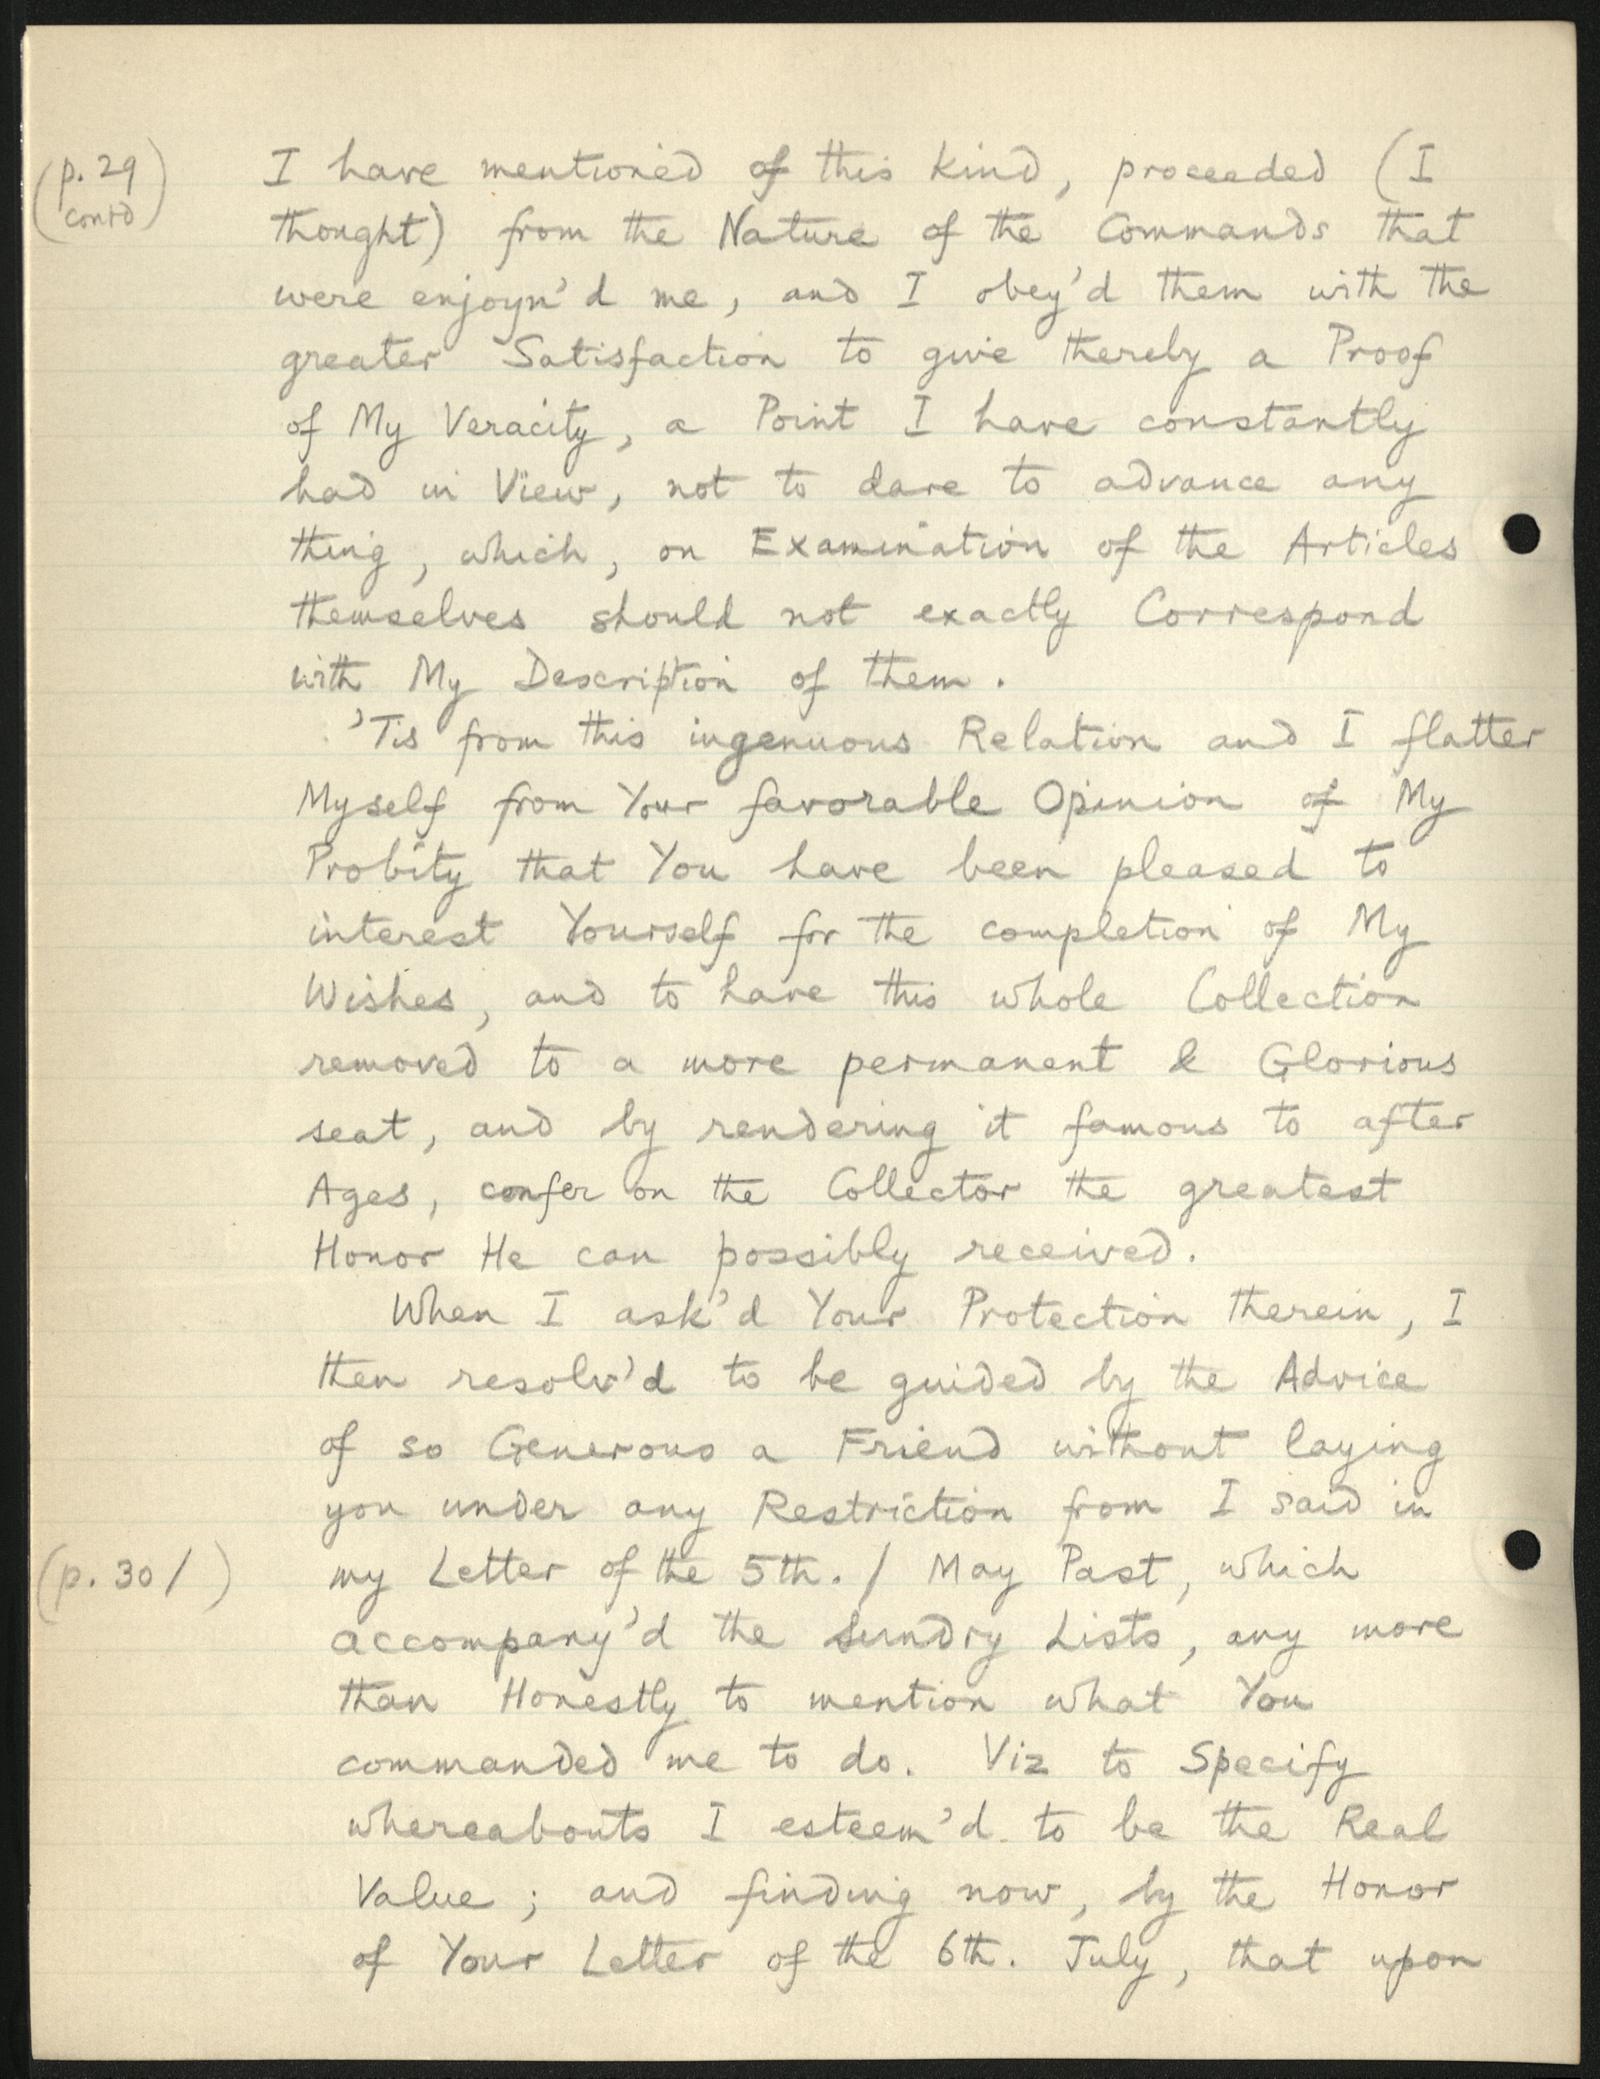 (p. 29 cont'd)
I have mentioned of this kind, proceeded (I
thought) from the Nature of the Commands that
were enjoyn'd me, and I obey'd them with the
greater Satisfaction to give thereby a Proof
of My Veracity, a Point I have constantly
had in View, not to dare to advance any
thing, which, on Examination of the Articles
themselves should not exactly Correspond
with My Description of them.
'Tis from this ingenuous Relation and I flatter
Myself from Your favorable Opinion of My
Probity that You have been pleased to
interest Yourself for the completion of My
Wishes, and to have this whole Collection
removed to a more permanent & Glorious
seat, and by rendering it famous to after
Ages, confer on the Collector the greatest
Honor He can possibly received.
When I ask'd Your Protection therein, I
then resolv'd to be guided by the Advice
of so Generous a Friend without laying
you under any Restriction from I said in
(p. 30 / ) my Letter of the 5th. / May Past, which
accompany'd the Sundry Lists, any more
than Honestly to mention what You
commanded me to do. Viz to Specify
whereabouts I esteem'd to be the Real
Value; and finding now, by the Honor
of Your Letter of the 6th. July, that upon